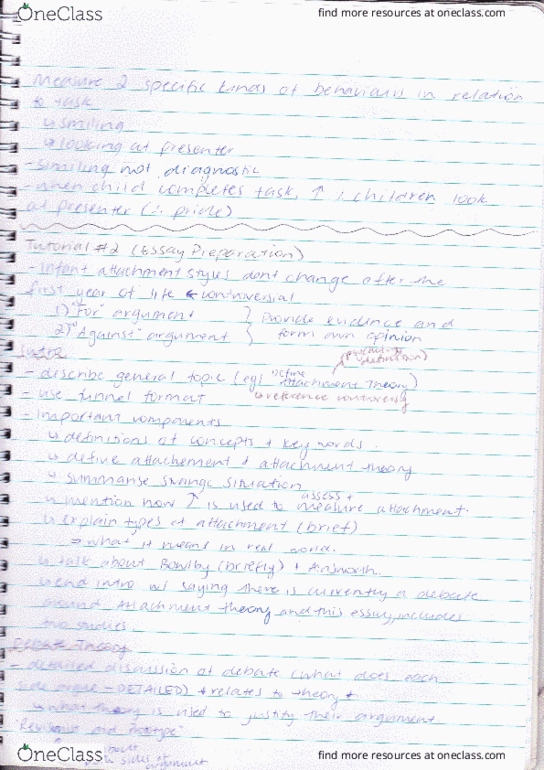 OneClass
find more resources at oneclass.com
Measure 2 specific kinds of behaviours in relation
to task
↳ smiling
↳ looking at presenter
- smiling not diagnostic
- when child completes task, ↑ ; children look
at presenter (∴ pride)
Tutorial #2 (Essay Preparation)
- Infant attachment styles dont change after the
first year of life ← controversial
1) "For" argument } provide evidence and
2) "Against" argument } form own opinion
Intro
definition)
- describe general topic (eg: define Attachment Theory)
- use funnel format ↳ reference controversy
- important components
↳ definitions of concepts + key words.
↳ define attachement + attachment theory
↳ summarise strange situation
↳ mention how ↑ is used to assess + measure attachment.
↳ explain types of attachment (brief)
⇒ what it means in real world.
↳ talk about Bowlby (briefly) + Ainsworth.
↳ end intro w/ saying there is currently a debate
around Attachment theory and this essay includes
two studies.
Debate Theory
- detailed discussion of debate (what does each
side argue - DETAILED) + relates to theory +
↳ what theory is used to justify their argument
"Revisionist and Prototype"
both sides of argument
OneClass
find more resources at oneclass.com